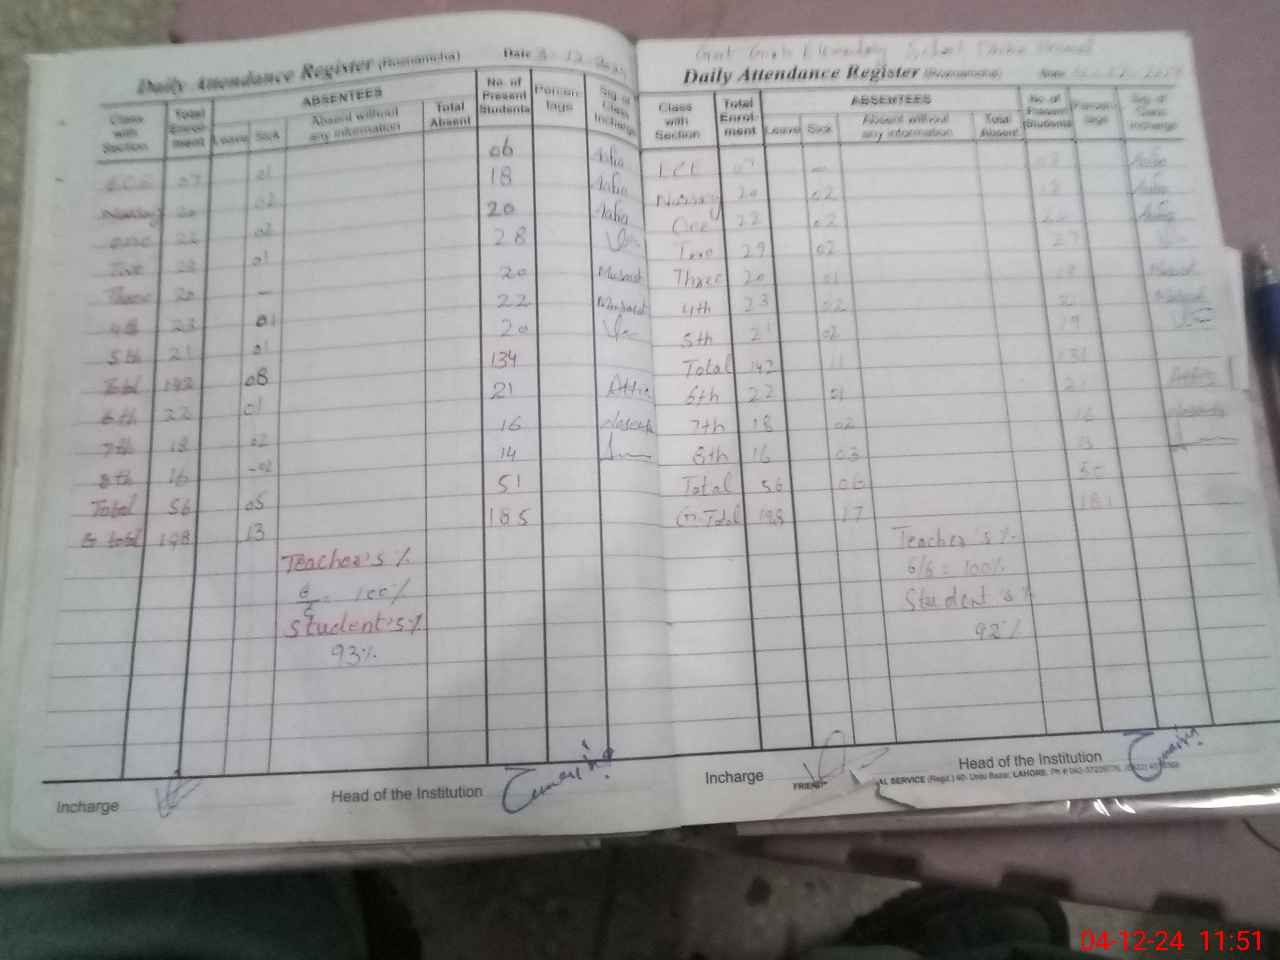 Daily Attendance Register (Roznamcha) Date 3-12-2024
Class with Section Total Enrol-ment ABSENTEES No. of Present Students Percen-tage Sig. of Class Incharge
Leave Sick Absent without any information Total Absent
E.C.E 07 01 06 Asfia
Nursery 20 02 18 Asfia
One 22 02 20 Asfia
Two 29 01 28
Three 20 — 20 Musarat
4th 23 01 22 Musarat
5th 21 01 20
Total 142 08 134
6th 22 01 21
7th 18 02 16
8th 16 02 14
Total 56 05 51
G total 198 13 185
Teacher's %
6/6 = 100%
Student's %
93%
Incharge Head of the Institution
Govt Girls Elementary School
Daily Attendance Register (Roznamcha) Date
Class with Section Total Enrol-ment ABSENTEES No. of Present Students Percen-tage Sig. of Class Incharge
Leave Sick Absent without any information Total Absent
ECE 07 — Asfia
Nursery 20 02 18 Asfia
One 22 02 20 Asfia
Two 29 02 27
Three 20 01 19 Musarat
4th 23 02 21 Musarat
5th 21 02 19
Total 142 11 131
6th 22 01 21
7th 18 02 16
8th 16 03 13
Total 56 06 50
G.Total 198 17 181
Teacher's %
6/6 = 100%
Student's %
92%
Incharge Head of the Institution
AL SERVICE (Regd.) 40, Urdu Bazar, LAHORE.
04-12-24 11:51